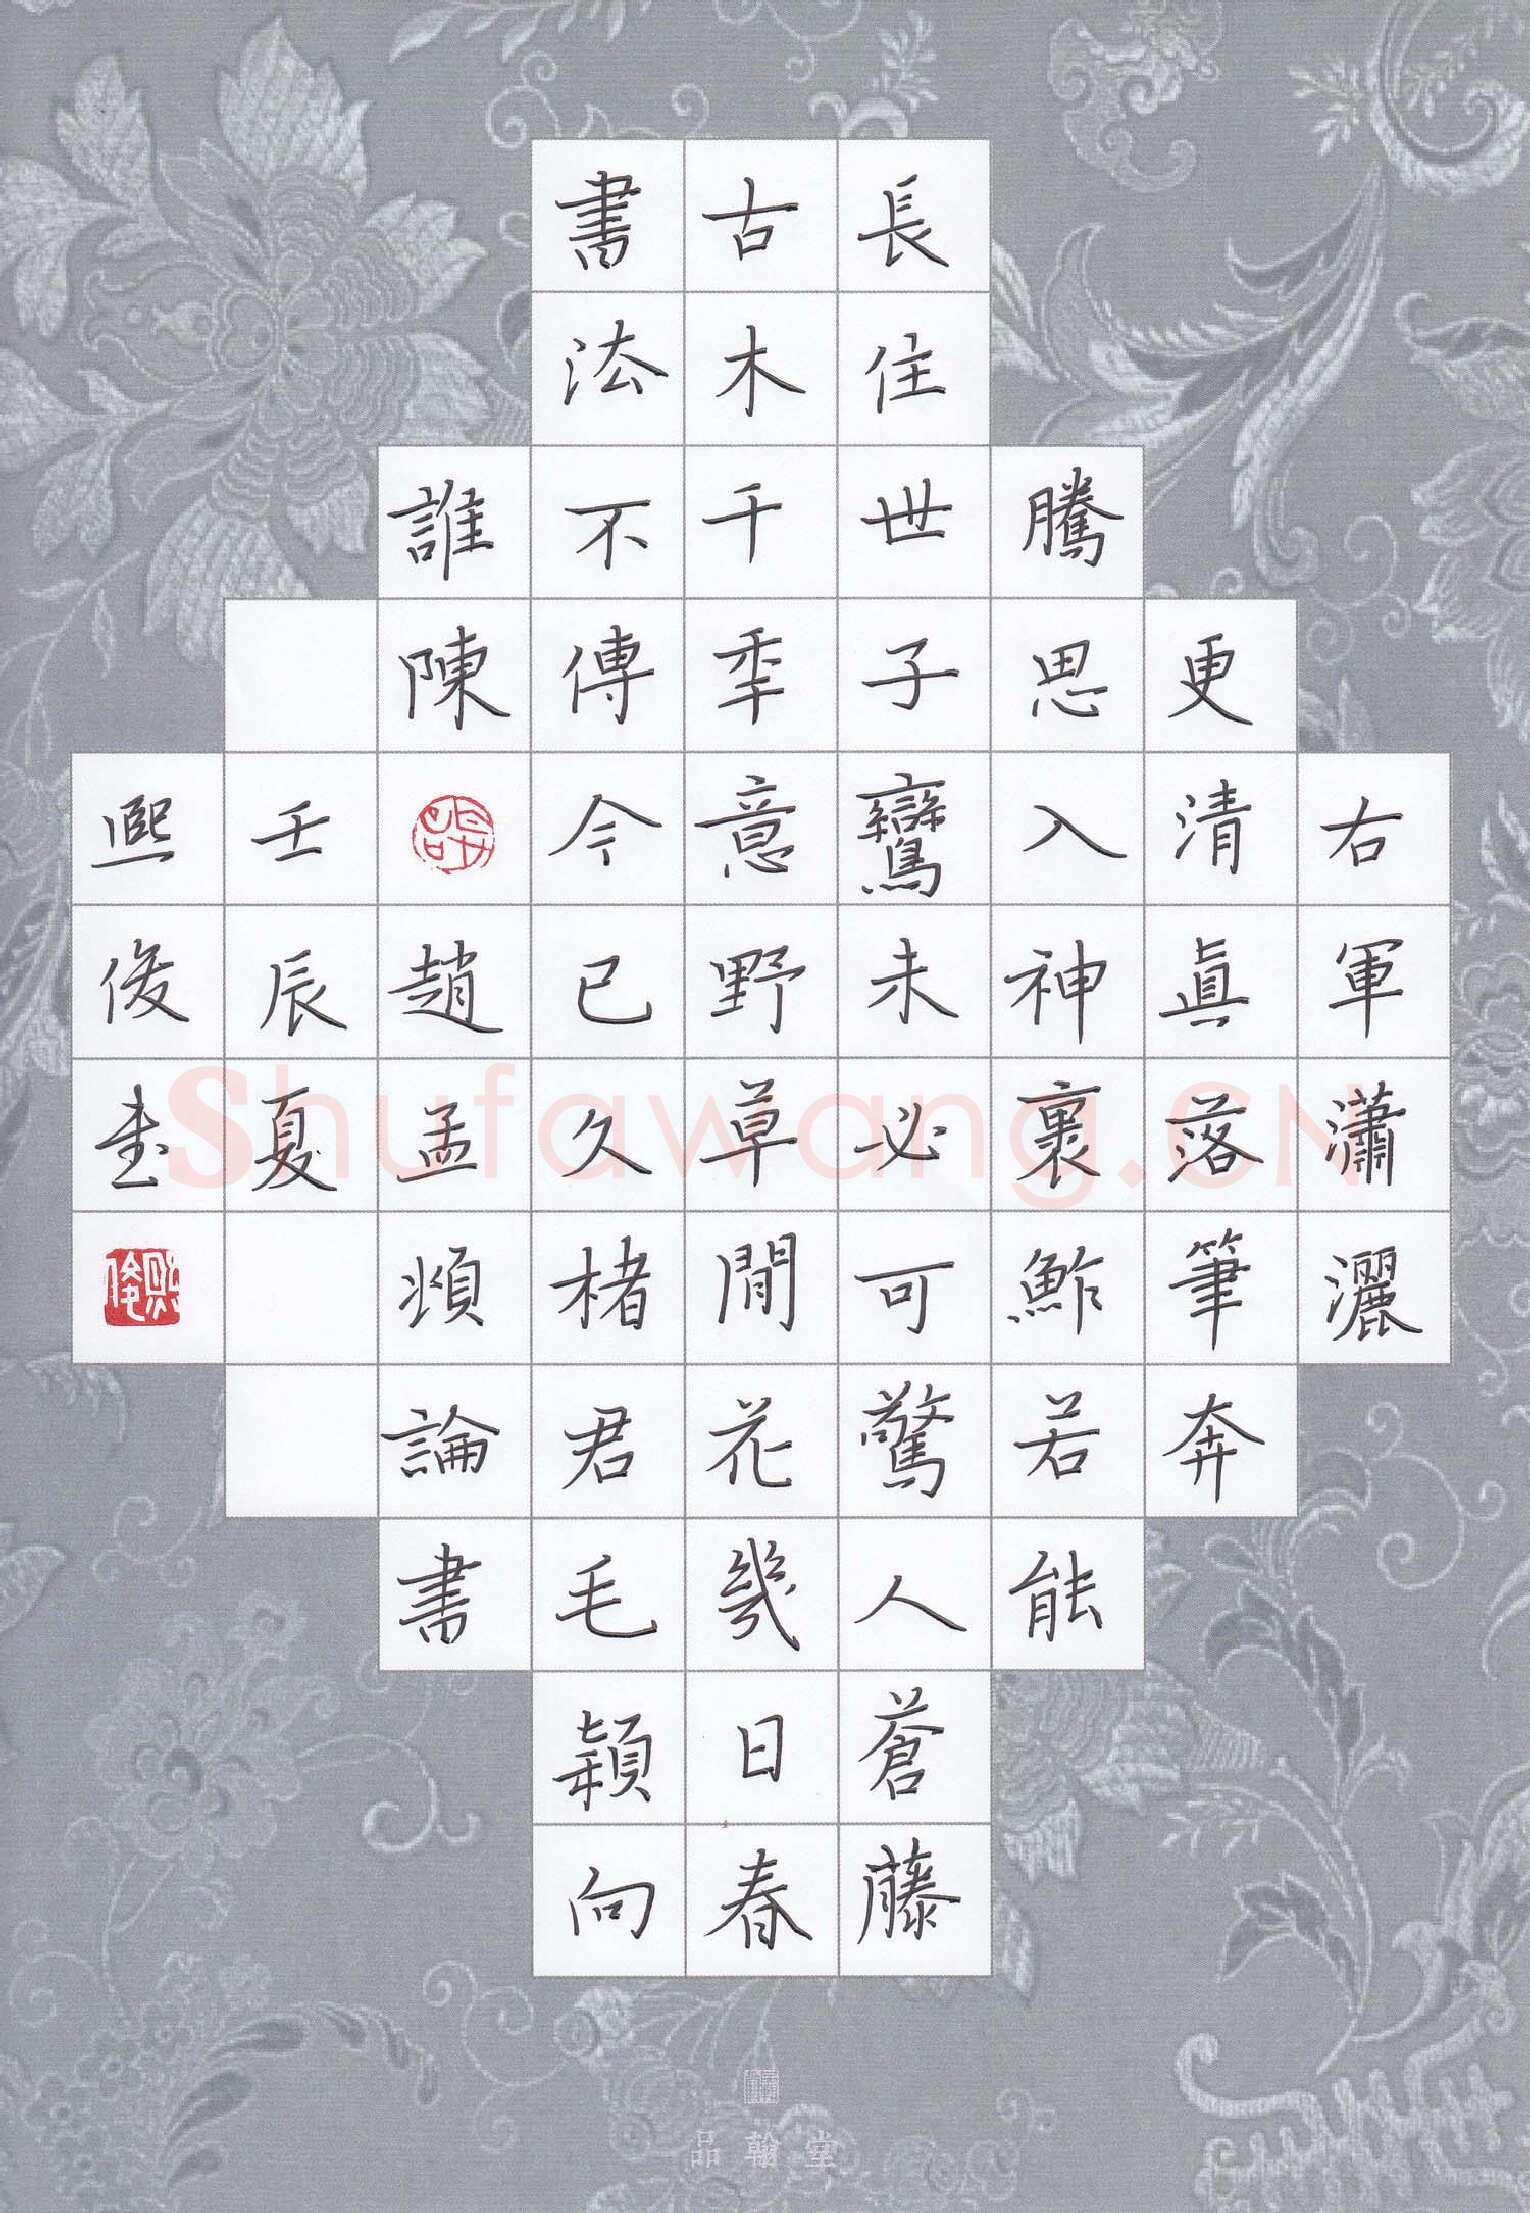 右軍瀟灑
更清眞落筆奔
騰思入神裹鮓若能
長住世子鸞未必可驚人蒼藤
古木千秊意野草閒花幾日春
書法不傳今已久楮君毛穎向
誰陳趙孟頫論書
壬辰夏
熙俊書
品翰堂
Shufawang.CN